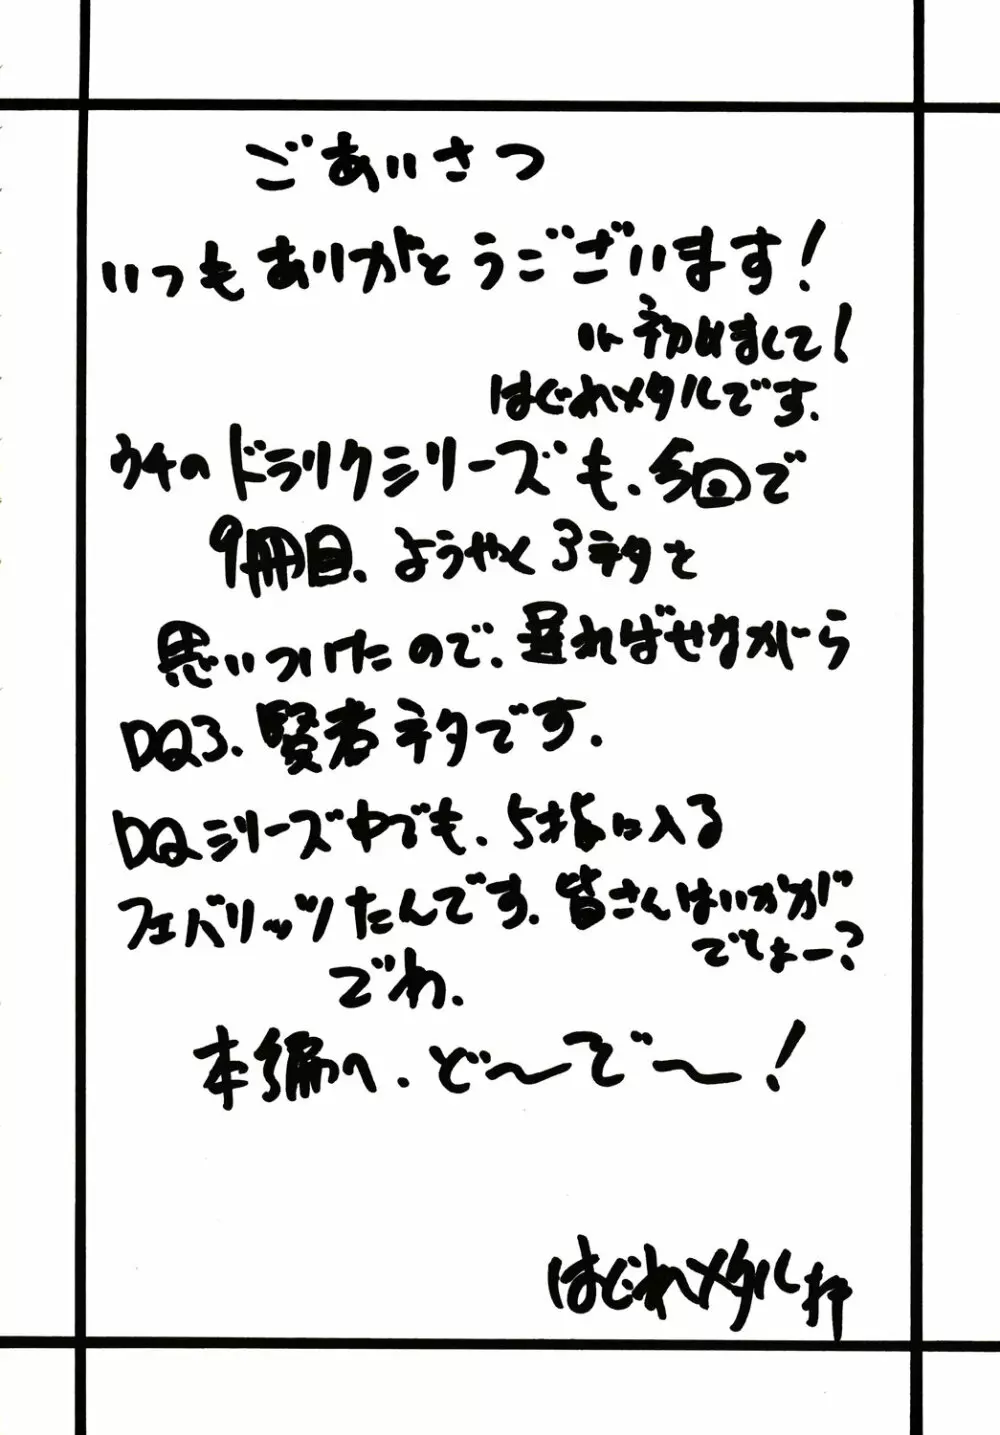 ごあいさつ
いつもありがとうございます!
初めまして!
はぐれメタルです.
ウチのドラクエシリーズも、今回で
9冊目、ようやく3ネタを
思いついたので、遅ればせながら
DQ3、賢者ネタです.
DQシリーズ中でも、5指に入る
フェバリッツたんです.皆さんはいかが
でしょー?
でわ、
本編へ、ど〜ぞ〜!
はぐれメタル 拝